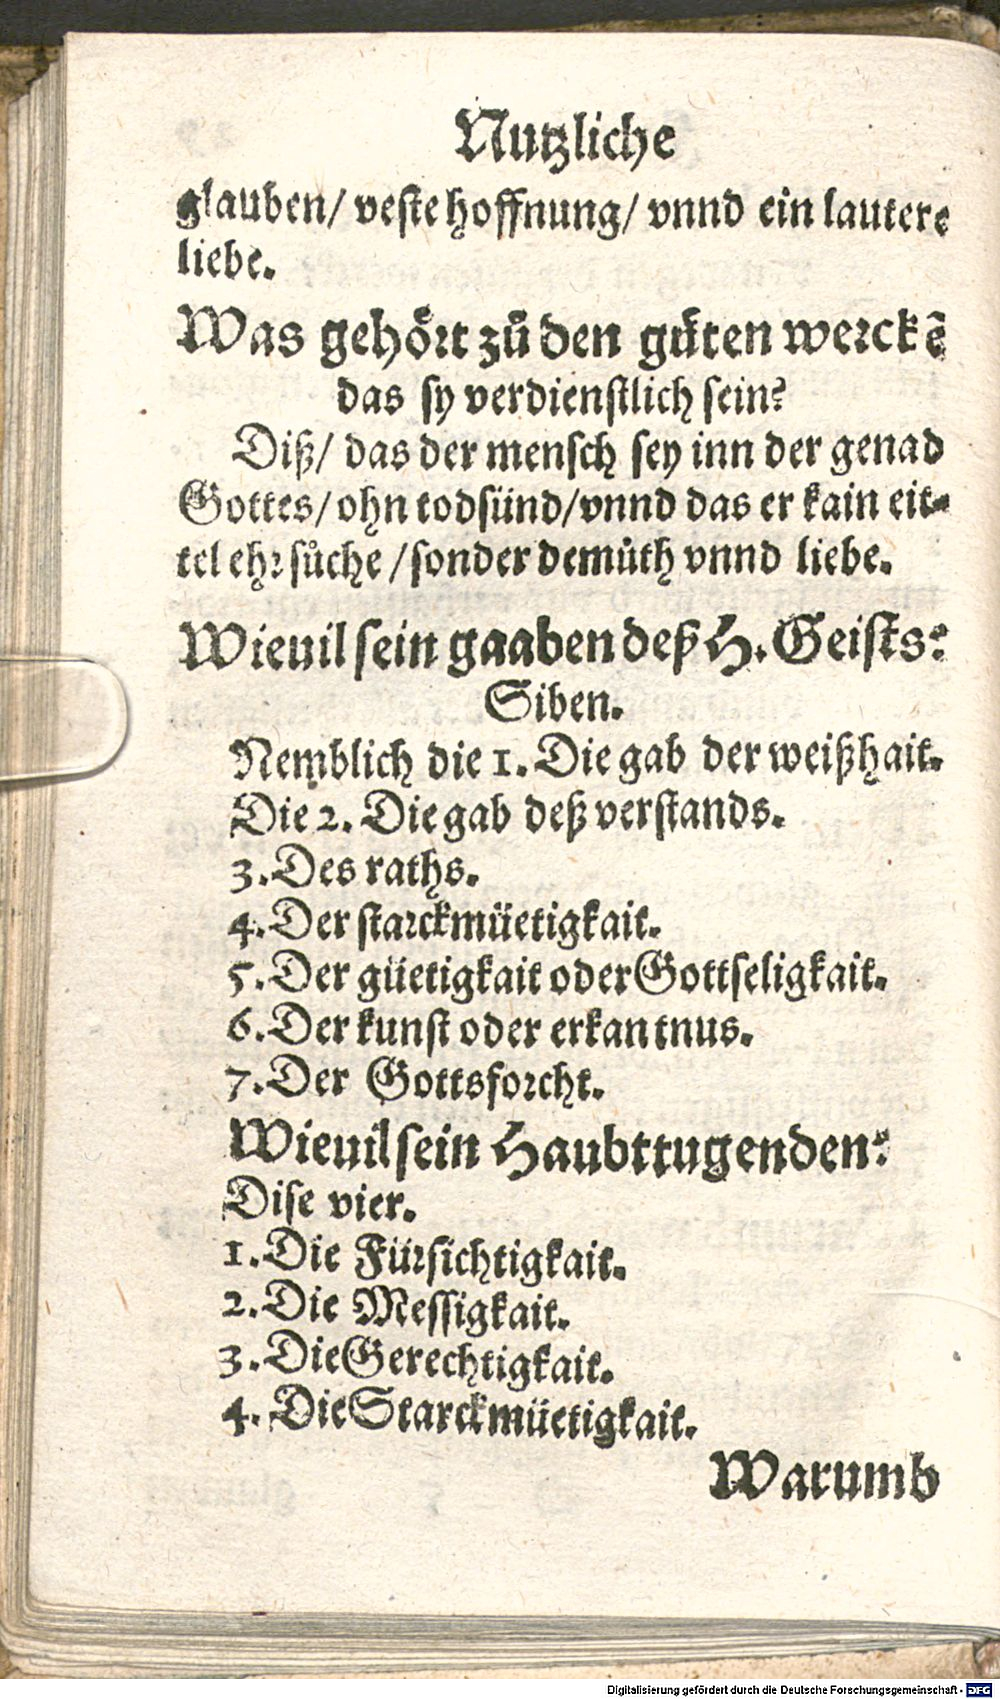 Nutzliche
glauben/ veste hoffnung/ vnnd ein lautere
liebe.
Was gehoͤrt zuͦ den guͦten werckẽ
das sy verdienstlich sein?
Diß/ das der mensch sey inn der genad
Gottes/ ohn todsünd/ vnnd das er kain eit-
tel ehr suͦche / sonder demuͤth vnnd liebe.
Wieuil sein gaaben deß H. Geists?
Siben.
Nemblich die 1. Die gab der weißhait.
Die 2. Die gab deß verstands.
3. Des raths.
4. Der starckmüetigkait.
5. Der güetigkait oder Gottseligkait.
6. Der kunst oder erkantnus.
7. Der Gottsforcht.
Wieuil sein Haubttugenden?
Dise vier.
1. Die Fürsichtigkait.
2. Die Messigkait.
3. Die Gerechtigkait.
4. Die Starckmüetigkait.
Warumb
Digitalisierung gefördert durch die Deutsche Forschungsgemeinschaft - DFG